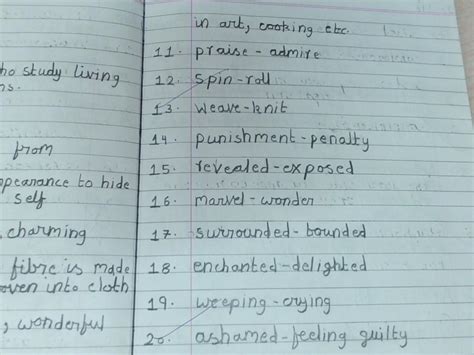 ho study living
ns.
from
pearance to hide
self
, charming
fibre is made
oven into cloth
, wonderful
in art, cooking etc.
11. praise - admire
12. spin - roll
13. weave - knit
14. punishment - penalty
15. revealed - exposed
16. marvel - wonder
17. surrounded - bounded
18. enchanted - delighted
19. weeping - crying
20. ashamed - feeling guilty